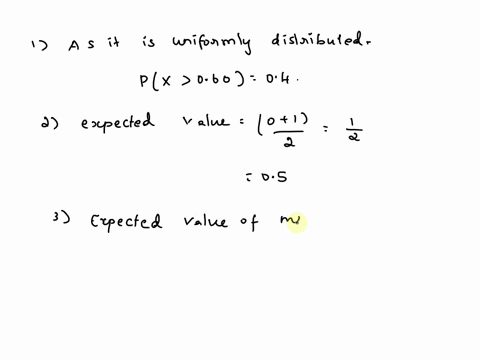 1) As it is uniformly distributed.
P(X > 0.60) = 0.4.
2) expected value = (0+1)/2 = 1/2
= 0.5
3) Expected value of